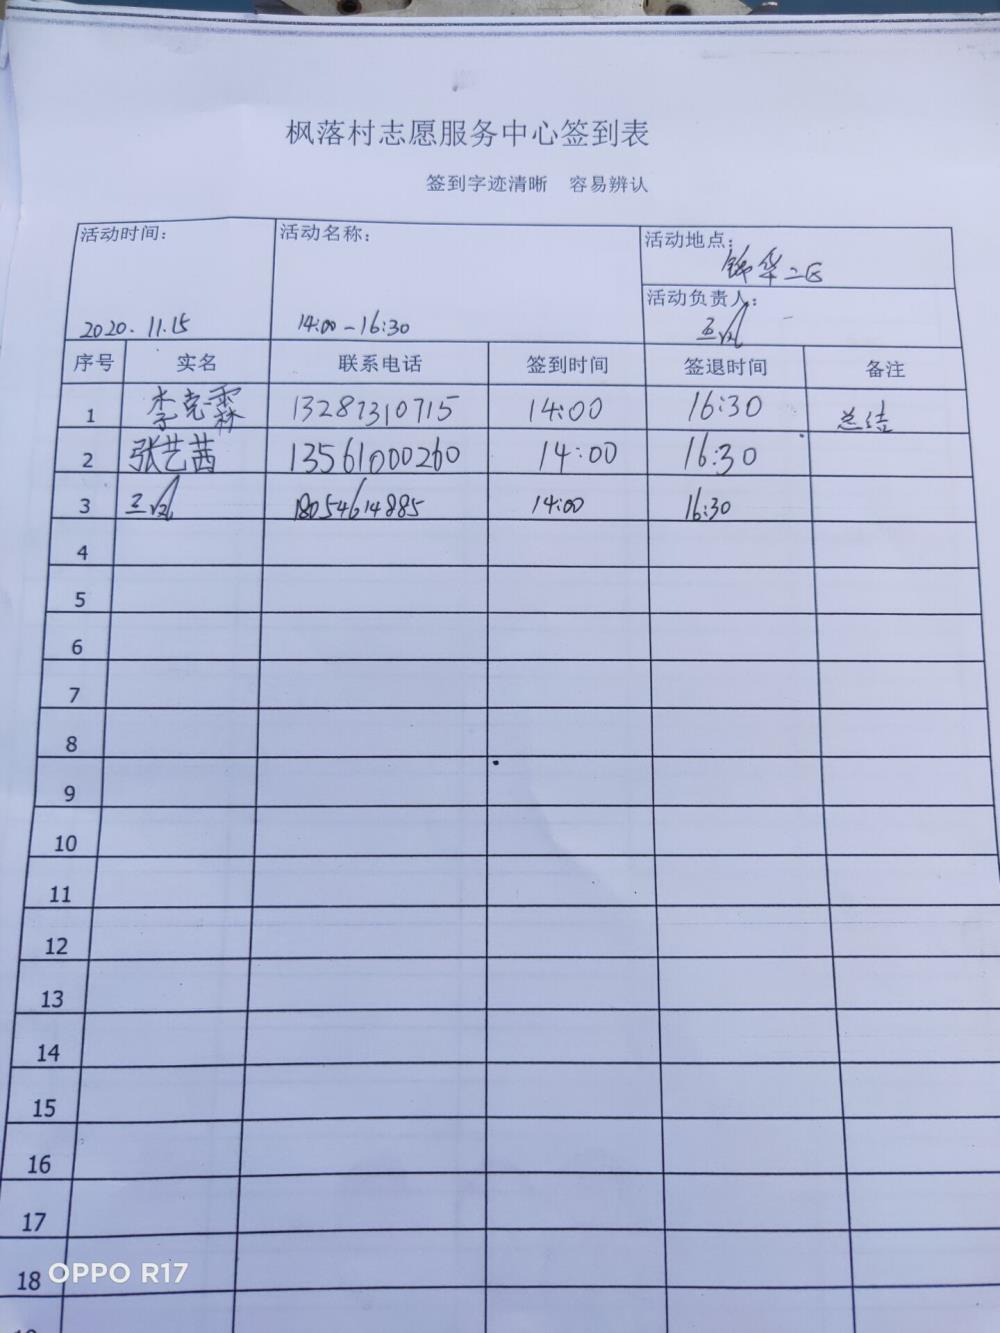 枫落村志愿服务中心签到表
签到字迹清晰 容易辨认
活动时间： 活动名称： 活动地点：锦华二区
活动负责人：
2020.11.15 14:00-16:30
序号 实名 联系电话 签到时间 签退时间 备注
1 李克霖 13287310715 14:00 16:30 总结
2 张艺茜 13561000260 14:00 16:30
3 18054614885 14:00 16:30
4
5
6
7
8
9
10
11
12
13
14
15
16
17
18
OPPO R17